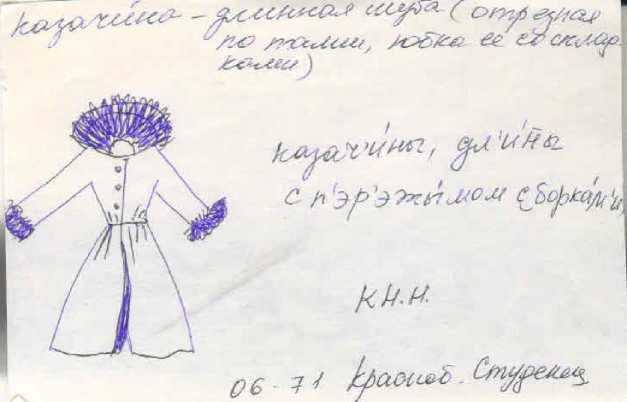 казачи́на – длинная шуба (отрезная
по талии, юбка ее со склад-
ками)
казач'и́ны, дл'и́н̄ы
с п'эр'эжы́мом с борка́м'и,
К.Н.Н.
06-71 Красноб. Студенец